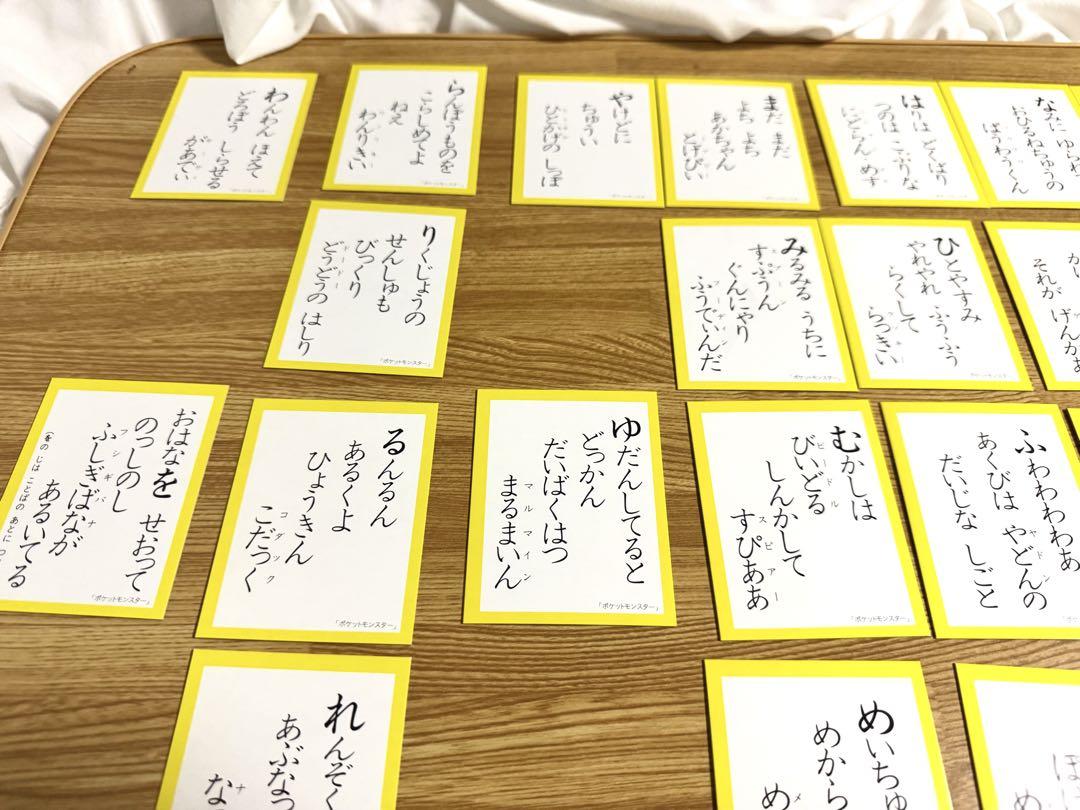 わんわん ほえて
どろぼう しらせる
があでぃい
「ポケットモンスター」
らんぼうものを
こらしめてよ
ねえ
わんりきい
「ポケットモンスター」
やけどに
ちゅうい
ひとかげの しっぽ
まだ まだ
よち よち
あかちゃん
とげぴい
はりは どくばり
つのは こぶりな
にどらん めす
なみに ゆられ
おひるねちゅうの
ぱうわうくん
りくじょうの
せんしゅも
びっくり
どうどうの はしり
ドードー
「ポケットモンスター」
みるみる うちに
すぷうん
スプーン
ぐんにゃり
ふうでぃんだ
フーディン
「ポケットモンスター」
ひとやすみ
やれやれ ふうふう
らくして
らっきい
「ポケットモンスター」
それが げんがあ
おはなを せおって
のっしのし
ふしぎばなが
フシギバナ
あるいてる
（をの じは ことばの あとに つ
「ポケットモンスター」
るんるん
あるくよ
ひょうきん
こだっく
コダック
「ポケットモンスター」
ゆだんしてると
どっかん
だいばくはつ
まるまいん
マルマイン
「ポケットモンスター」
むかしは
びいどる
ビードル
しんかして
すぴああ
スピアー
「ポケットモンスター」
ふわわわわぁ
あくびは やどんの
ヤドン
だいじな しごと
「ポケットモンスター」
れんぞく
あぶなつ
な
ナ
めいちゅ
めから
め
メ